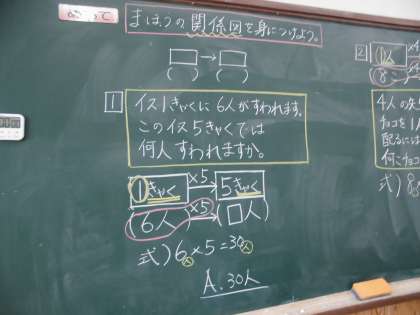 まほうの関係図を身につけよう。
□→□
( ) ( )
1
イス1きゃくに6人がすわれます。
このイス5きゃくでは
何人すわれますか。
①きゃく ×5 5きゃく
(6人) ×5 (□人)
式) 6×5=30
人 人
A.30人
2
4人の
チョコを1人
配るには
何こチョコ
式) 8